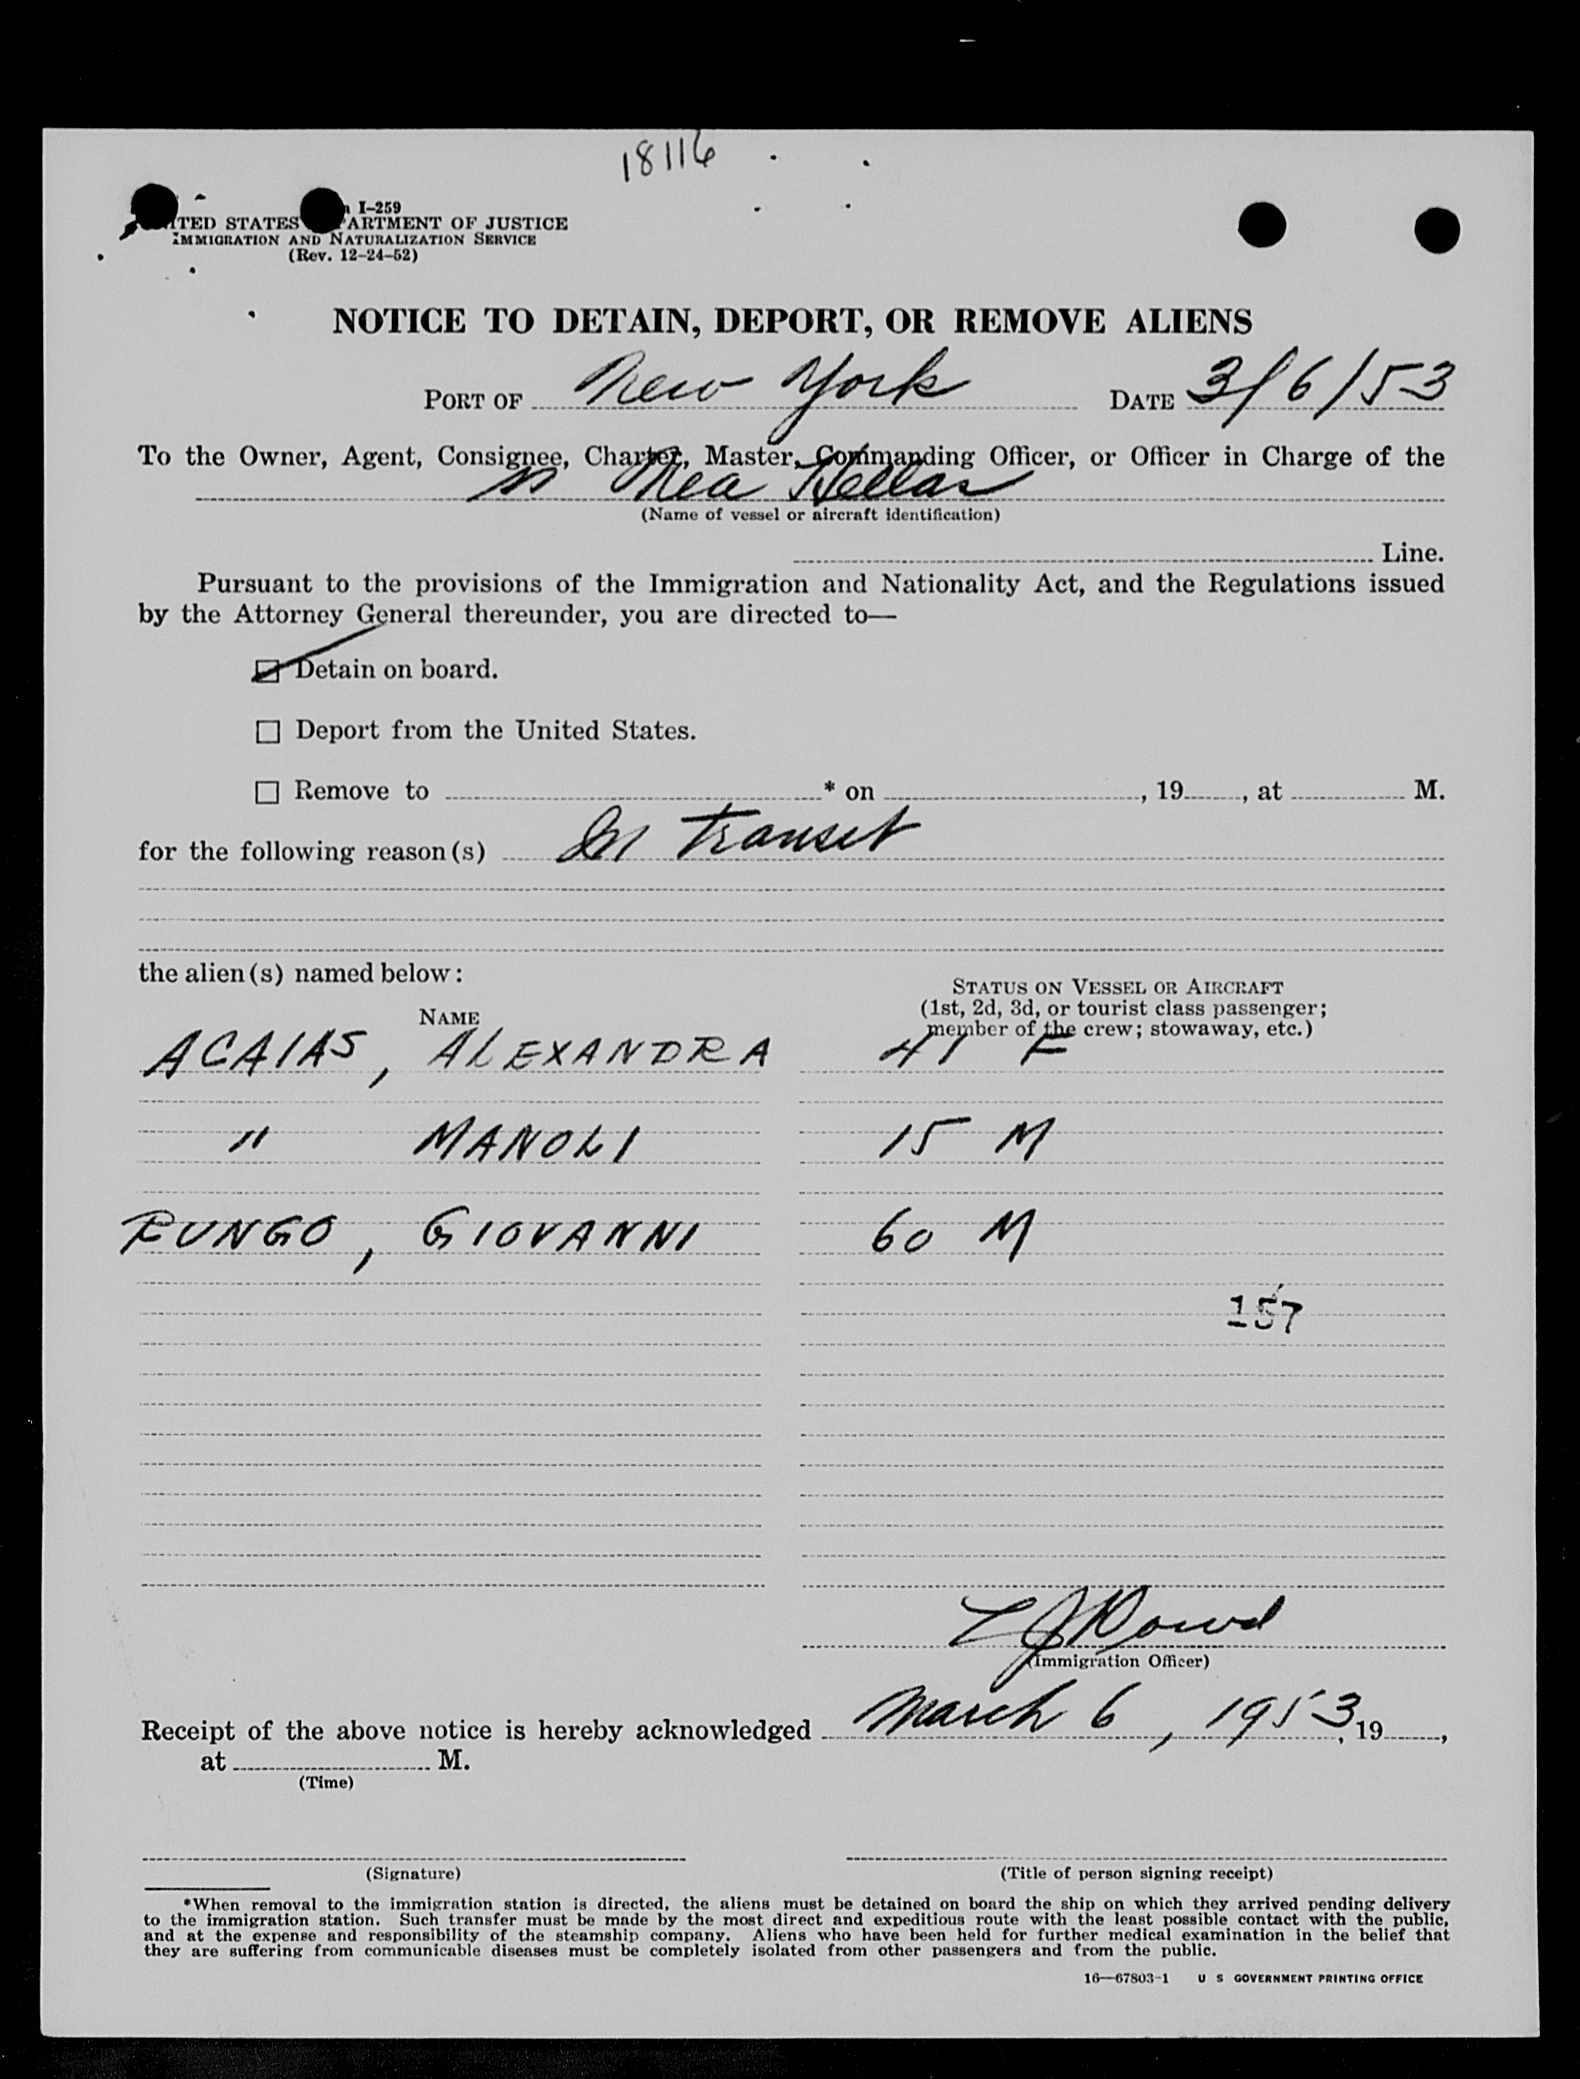 18116
I-259
UNITED STATES DEPARTMENT OF JUSTICE
IMMIGRATION AND NATURALIZATION SERVICE
(Rev. 12-24-52)
NOTICE TO DETAIN, DEPORT, OR REMOVE ALIENS
PORT OF New York DATE 3/6/53
To the Owner, Agent, Consignee, Charter, Master, Commanding Officer, or Officer in Charge of the
ss Nea Hellas
(Name of vessel or aircraft identification)
Line.
Pursuant to the provisions of the Immigration and Nationality Act, and the Regulations issued
by the Attorney General thereunder, you are directed to—
☑ Detain on board.
☐ Deport from the United States.
☐ Remove to * on , 19 , at M.
for the following reason(s) In transit
the alien(s) named below:
STATUS ON VESSEL OR AIRCRAFT
(1st, 2d, 3d, or tourist class passenger;
NAME
member of the crew; stowaway, etc.)
ACAIAS, ALEXANDRA 41 F
" MANOLI 15 M
RUNGO, GIOVANNI 60 M
157
L J Dowd
(Immigration Officer)
Receipt of the above notice is hereby acknowledged March 6, 1953, 19 ,
at M.
(Time)
(Signature) (Title of person signing receipt)
*When removal to the immigration station is directed, the aliens must be detained on board the ship on which they arrived pending delivery
to the immigration station. Such transfer must be made by the most direct and expeditious route with the least possible contact with the public,
and at the expense and responsibility of the steamship company. Aliens who have been held for further medical examination in the belief that
they are suffering from communicable diseases must be completely isolated from other passengers and from the public.
16—67803-1 U S GOVERNMENT PRINTING OFFICE